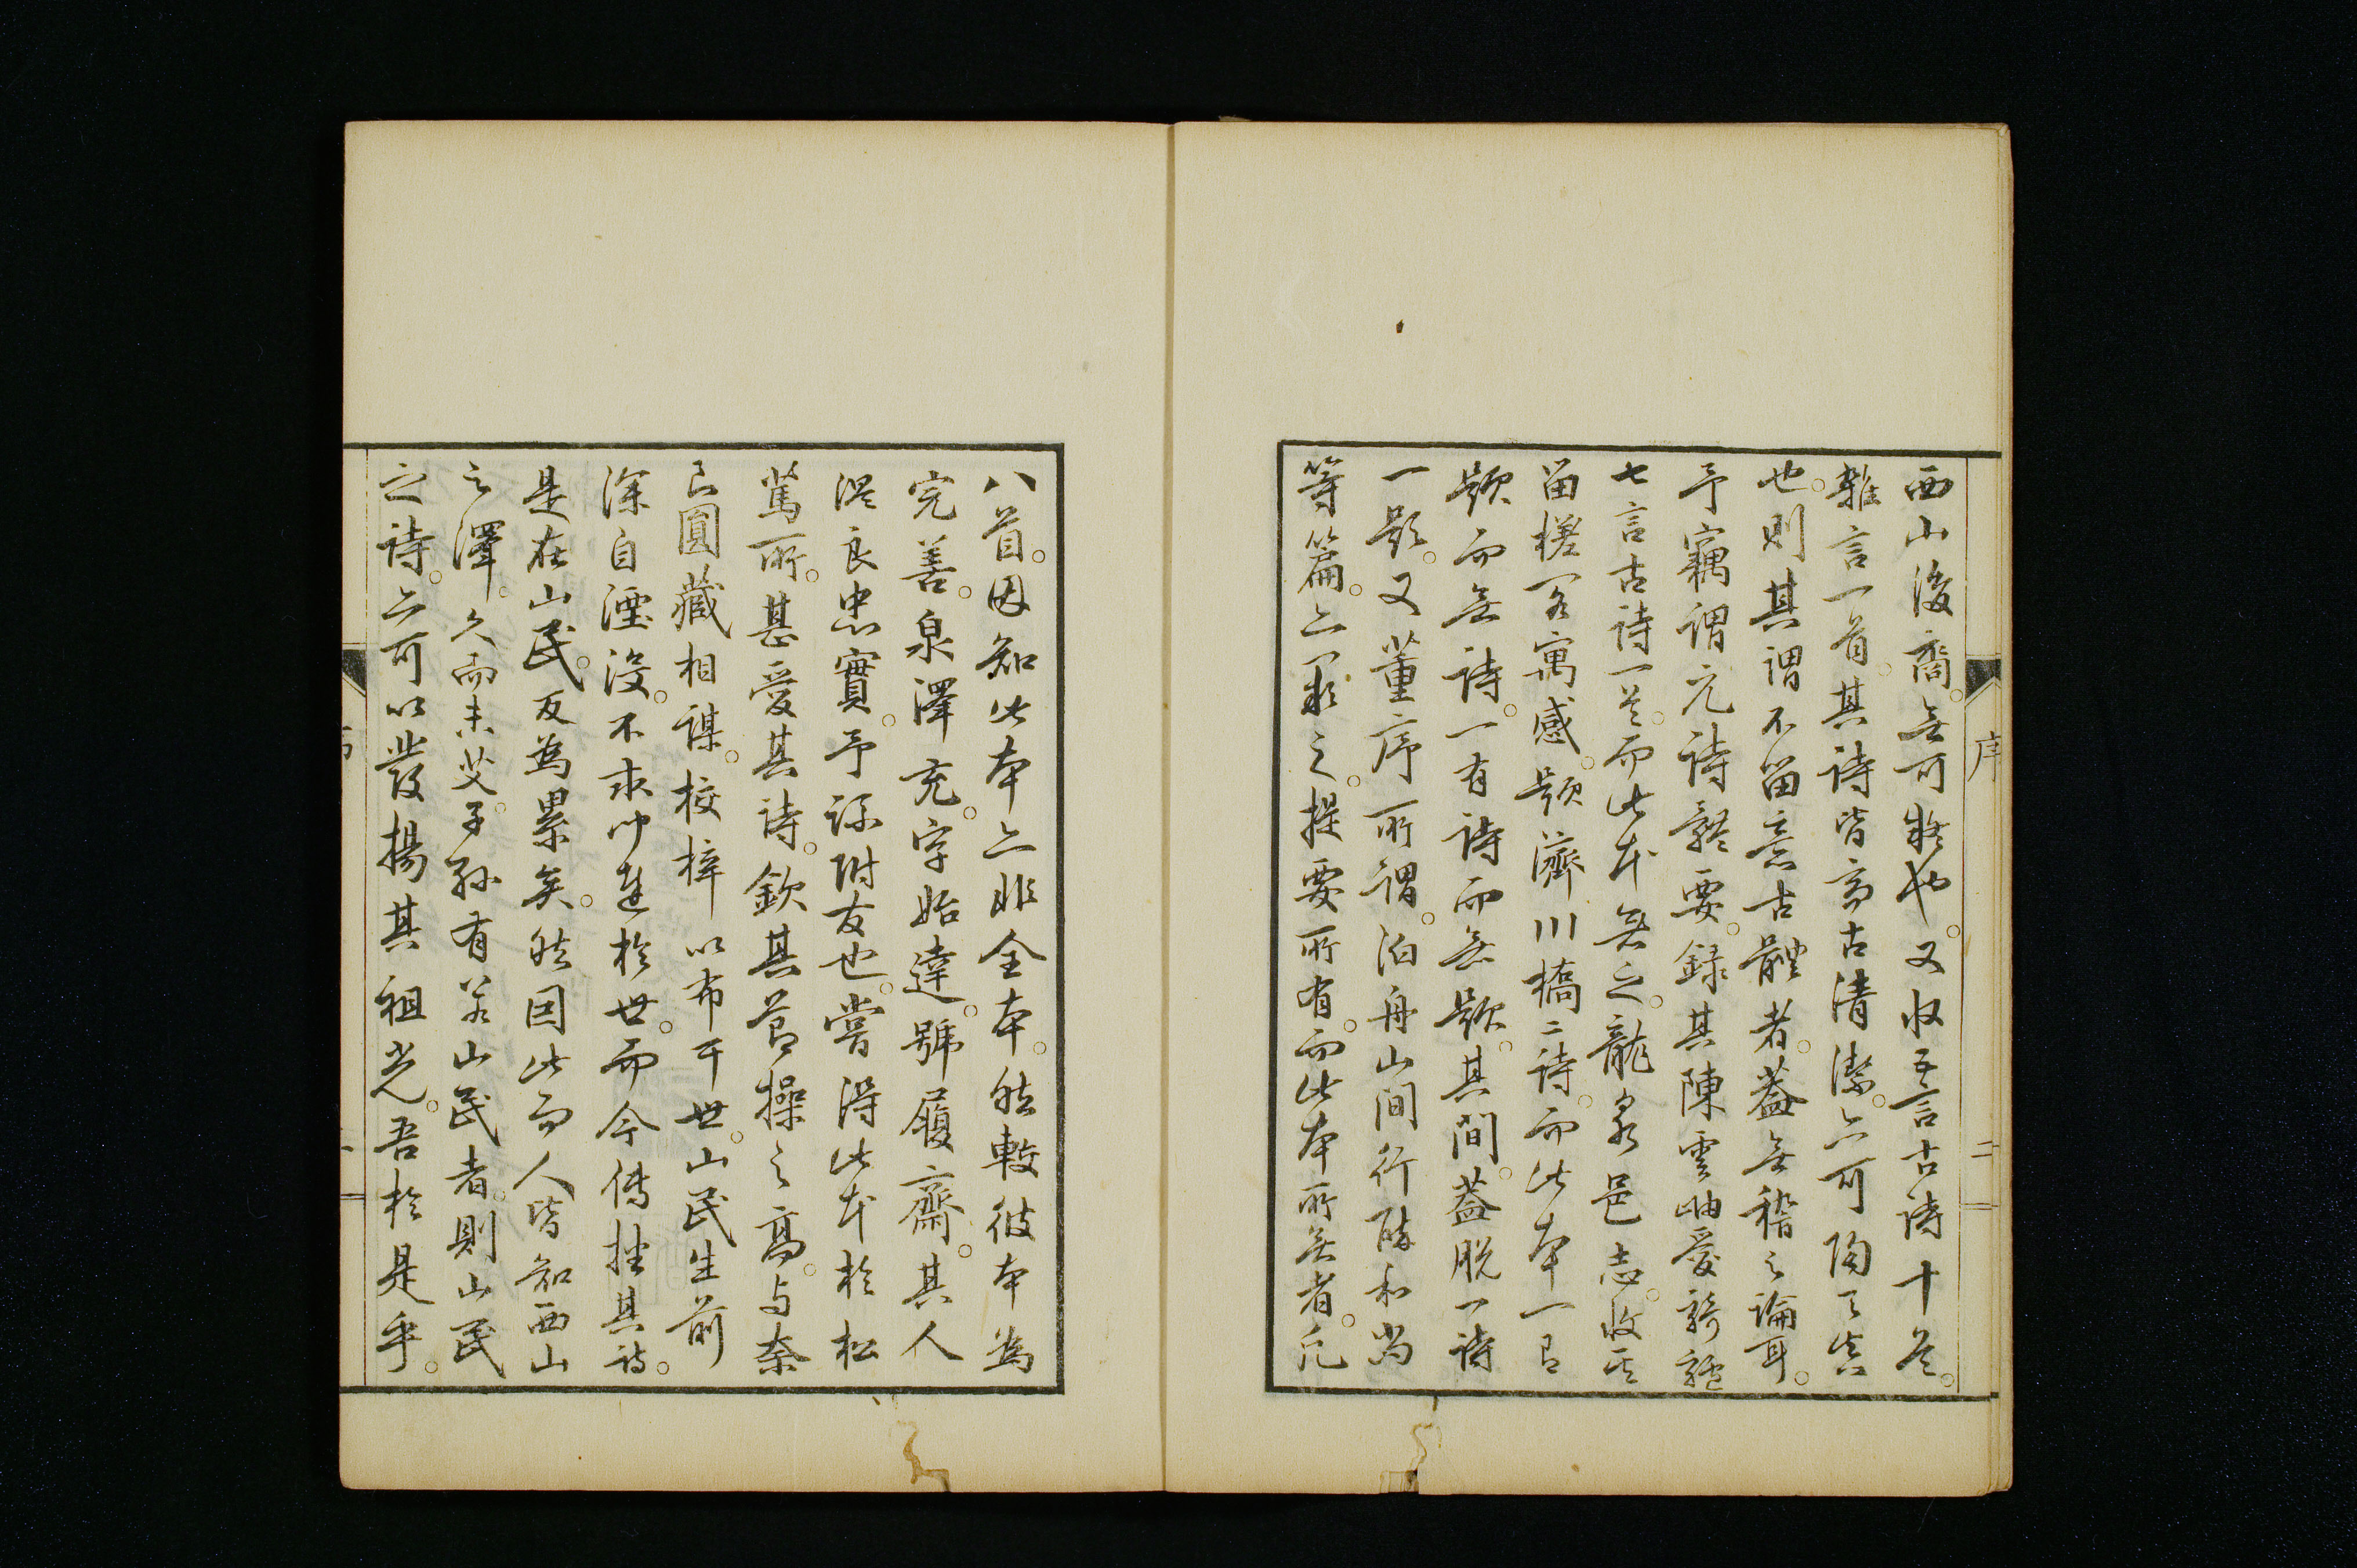 西山後裔。無可疑也。又收五言古詩十首。
雜言一首。其詩皆高古清潔。亦可陶天真
也。則其謂不留意古體者。蓋無稽之論耳。
予竊謂元詩體要。錄其陳雲岫愛騎驢
七言古詩一首。而此本無之。龍泉邑志。收其
留槎閣寓感。題濟川橋二詩。而此本一有
題而無詩。一有詩而無題。其間。蓋脫一詩
一題。又董序所謂。泊舟山間行酬和尚
等篇。亦闕之。提要所有。而此本所無者。凡
八首。因知此本亦非全本。然較彼本為
完善。泉澤充。字始達。號履齋。其人
溫良忠實。予詩附友也。嘗得此本於松
篤所。甚愛其詩。欽其節操之高。与奈
良圓藏相謀。校梓以布于世。山民生前
深自湮沒。不求聞達於世。而今傳播其詩。
是在山民。反為累矣。然因此而人皆知西山
之澤。久而未艾。子孫有若山民者。則山民
之詩。亦可以發揚其祖光。吾於是乎。
序
二